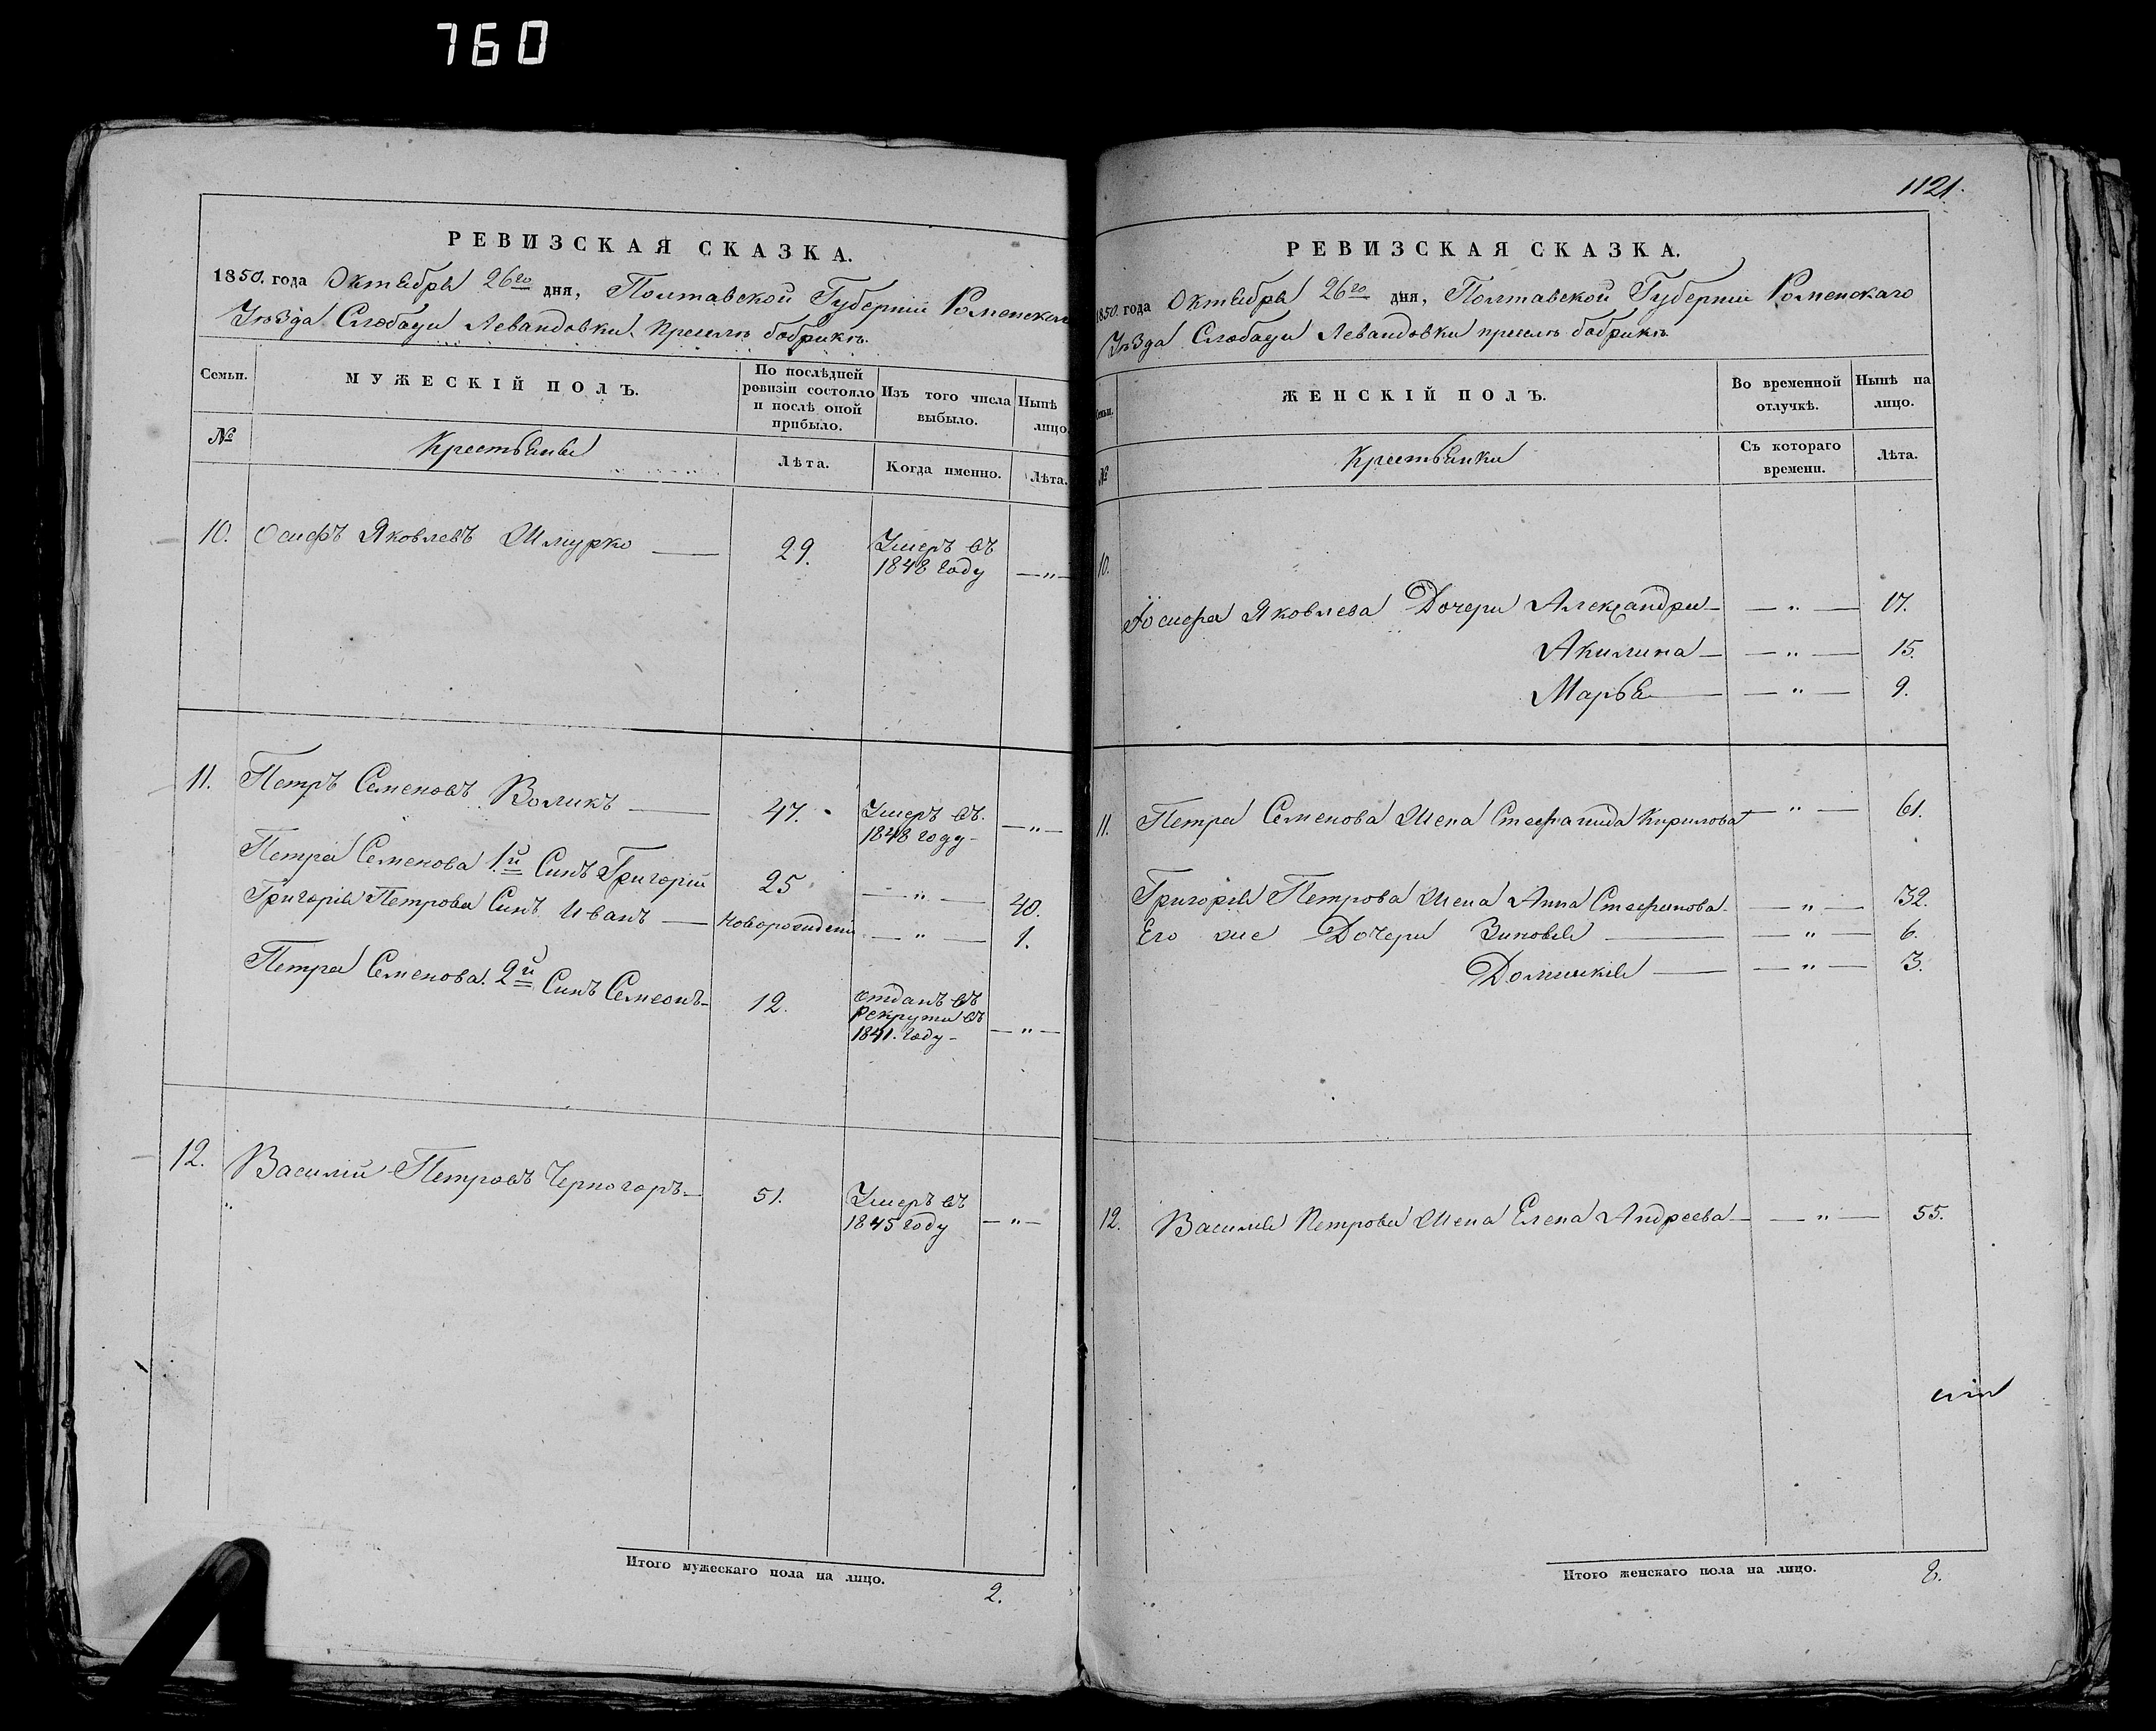 760
РЕВИЗСКАЯ СКАЗКА.
1850. года Октября 26го дня, Полтавской Губерніи Роменскаго
Уѣзда Слободы Левандовки
Семьи.
МУЖЕСКІЙ ПОЛЪ.
По послѣдней ревизіи состояло и послѣ оной прибыло.
Изъ того числа выбыло.
Нынѣ лицо.
№
Крестьяне
Лѣта.
Когда именно.
Лѣта.
10. Осифъ Яковлевъ Шмурко — 29. Умеръ въ — " —
1848 году
11. Петръ Семеновъ Воликъ — 47. Умеръ въ — " —
1848 году
Петра Семенова 1й Синъ Григорій 25 — " — 40.
Григорія Петрова Синъ Иванъ — новорожденъ — " — 1.
Петра Семенова. 2й Синъ Семеонъ — 12. отданъ въ
рекруты въ — " —
1841. году —
12. Василій Петровъ Черногоръ — 51. Умеръ въ
1845 году — " —
Итого мужескаго пола на лицо.
2.
1121.
РЕВИЗСКАЯ СКАЗКА.
1850. года Октября 26го дня, Полтавской Губерніи Роменскаго
Уѣзда Слободы Левандовки
Семьи.
ЖЕНСКІЙ ПОЛЪ.
Во временной отлучкѣ.
Нынѣ на лицо.
№
Крестьянки
Съ котораго времени.
Лѣта.
10.
Іосифа Яковлева Дочери Александра — — " — 17.
Акилина — — " — 15.
Марья — — " — 9.
11. Петра Семенова Жена Стефанида Кирилова — " — 61.
Григорія Петрова Жена Анна Стефанова — " — 32.
Его же Дочери Зиновія — — " — 6.
Домникія — — " — 3.
12. Василія Петрова Жена Елена Андреева — — " — 55.
Итого женскаго пола на лицо.
8.